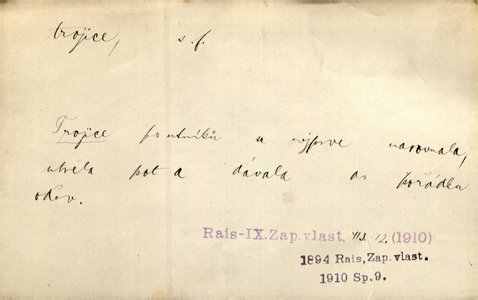 trojice, s. f.
Trojice poutníků u nejprve narovnala,
utřela pot a dávala do pořádku
oděv.
Rais-IX. Zap. vlast. 12. (1910)
1894 Rais, Zap. vlast.
1910 Sp. 9.